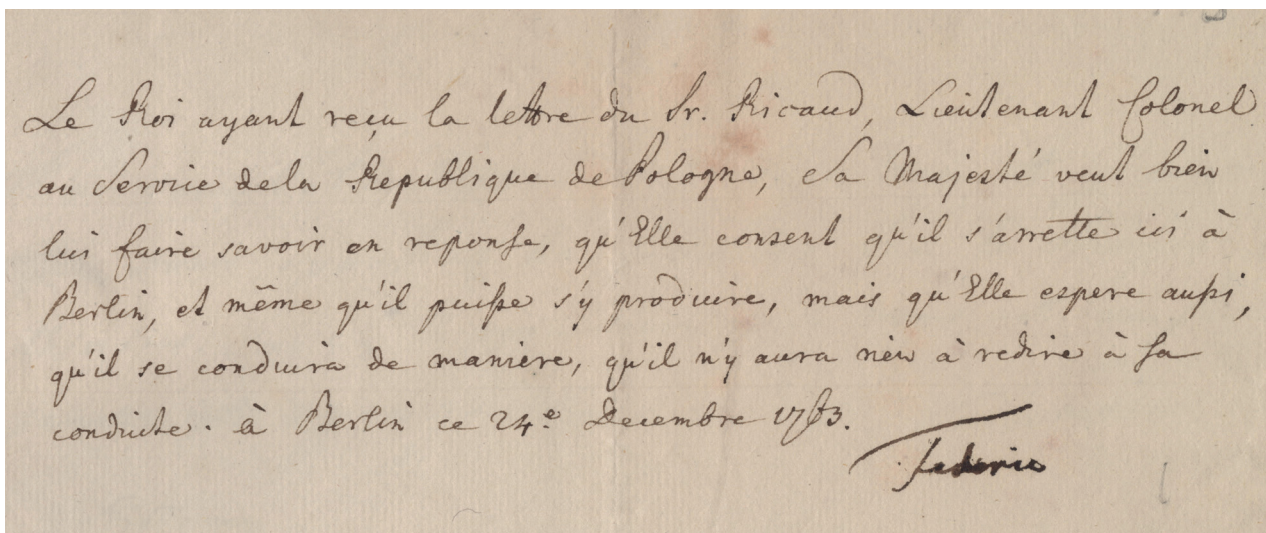 Le Roi ayant reçu la lettre du Sr. Ricaud, Lieutenant Colonel
au Service de la Republique de Pologne, Sa Majesté veut bien
lui faire savoir en reponse, qu'Elle consent qu'il s'arrette ici à
Berlin, et même qu'il puisse s'y produire, mais qu'Elle espere aussi,
qu'il se conduira de maniere, qu'il n'y aura rien à redire à sa
conduite. à Berlin ce 24e. Decembre 1763.
Federic